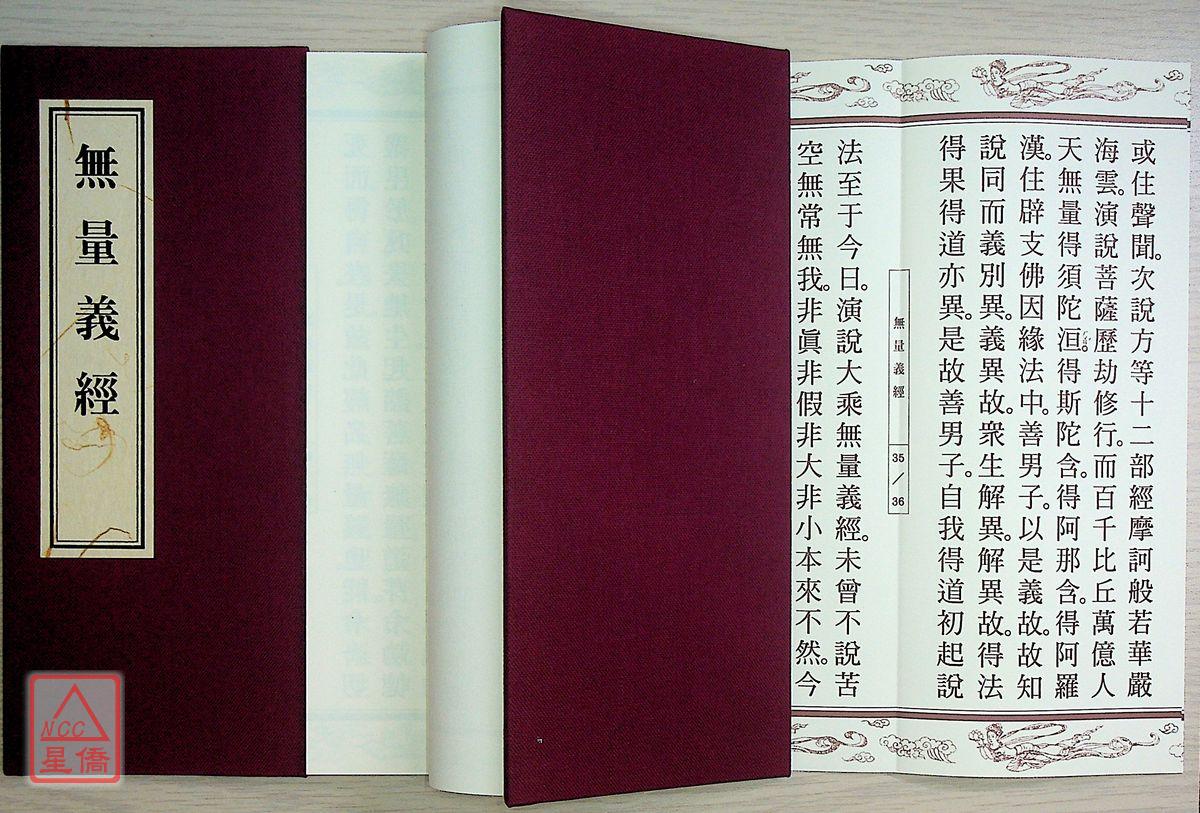 無量義經
或住聲聞。次說方等十二部經摩訶般若華嚴
海雲。演說菩薩歷劫修行。而百千比丘萬億人
天無量得須陀洹。得斯陀含。得阿那含。得阿羅
漢。住辟支佛因緣法中。善男子。以是義故。故知
說同而義別異。義異故。衆生解異。解異故。得法
得果得道亦異。是故善男子。自我得道初起說
無量義經
35/36
法至于今日。演說大乘無量義經。未曾不說苦
空無常無我。非眞非假非大非小本來不然。今
NCC
星僑